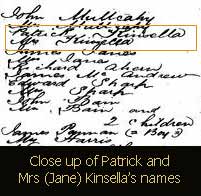 John Mullcahy
Mrs Mullcahy
Patrick Kinsella
Mrs Kinsella
James
Mrs Jane
Michael Ahern
James McAndrew
Edward Shanks
Mrs Shanks
John Bain
Mrs Bain and
2 children
James Pyman
Mrs Harris
Close up of Patrick and
Mrs (Jane) Kinsella's names